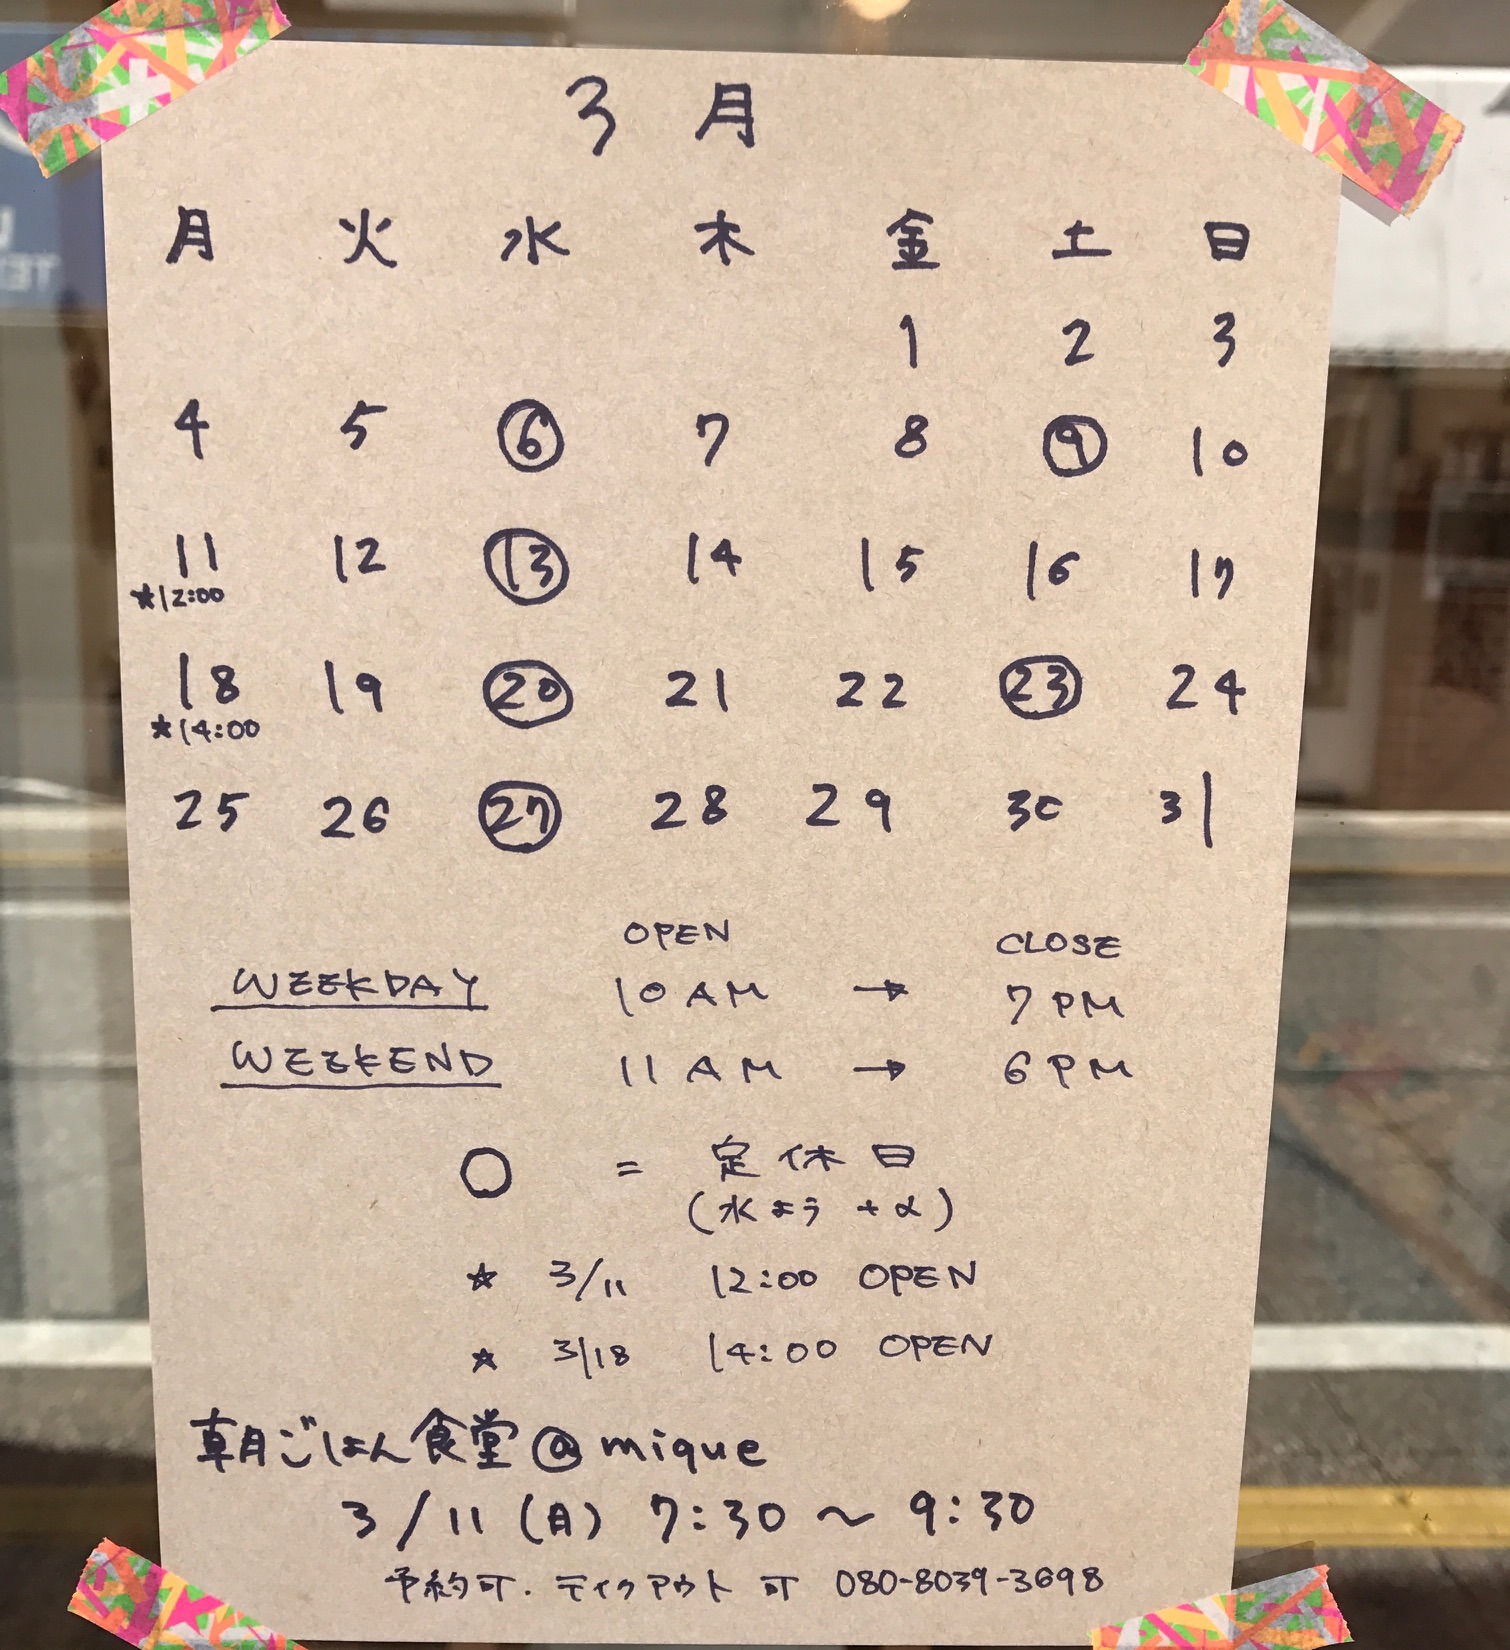 3月
月 火 水 木 金 土 日
1 2 3
4 5 ⑥ 7 8 ⑨ 10
11 12 ⑬ 14 15 16 17
★12:00
18 19 ⑳ 21 22 ㉓ 24
★14:00
25 26 ㉗ 28 29 30 31
OPEN CLOSE
WEEKDAY 10AM → 7PM
WEEKEND 11AM → 6PM
○ = 定休日
(水よう +α)
★ 3/11 12:00 OPEN
★ 3/18 14:00 OPEN
朝ごはん食堂@mique
3/11(月) 7:30〜9:30
予約可. テイクアウト可 080-8039-3698